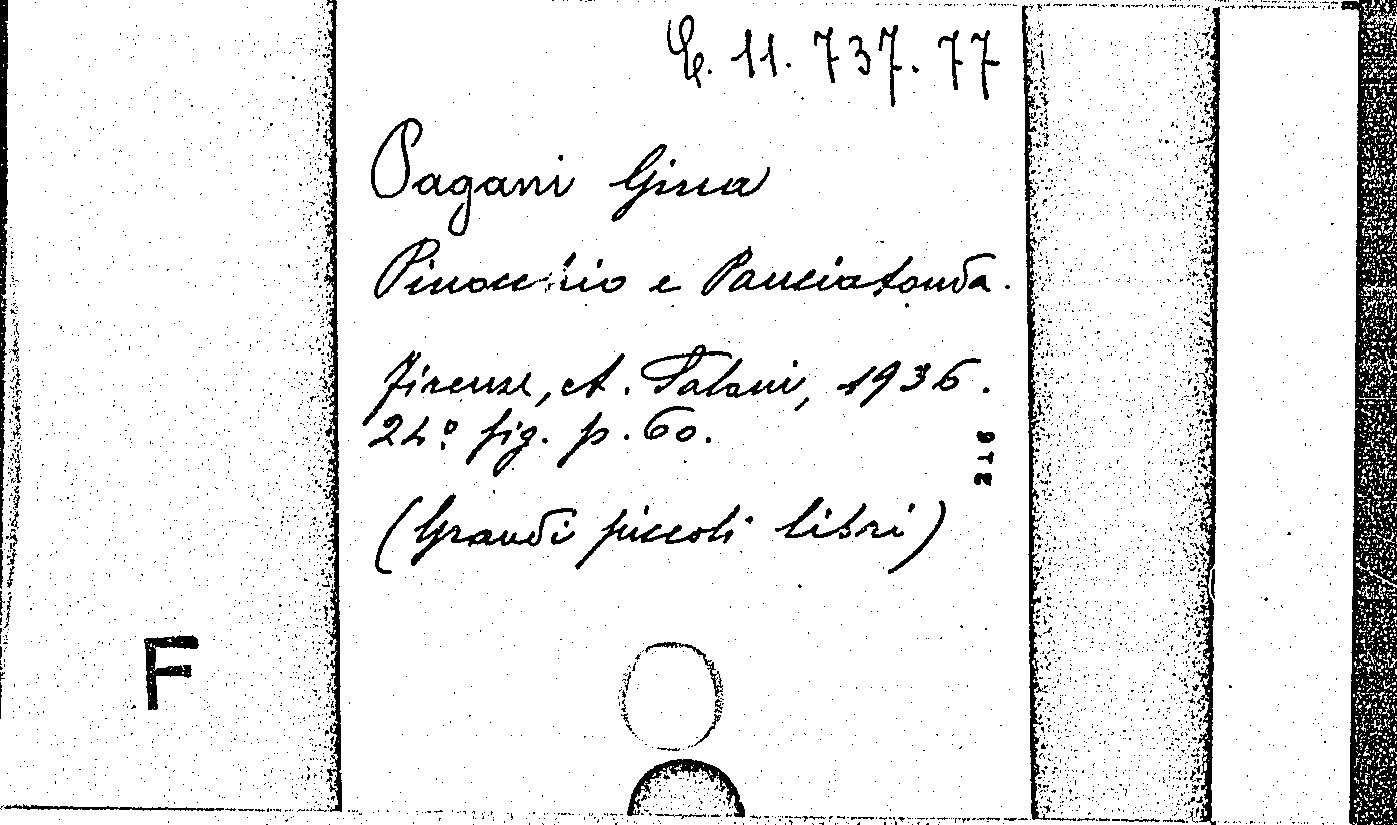 C. 11. 737. 77
Pagani Gina
Pinocchio e Panciatonda.
Firenze, A. Salani, 1936.
24° fig. p. 60.
(Grandi piccoli libri)
F